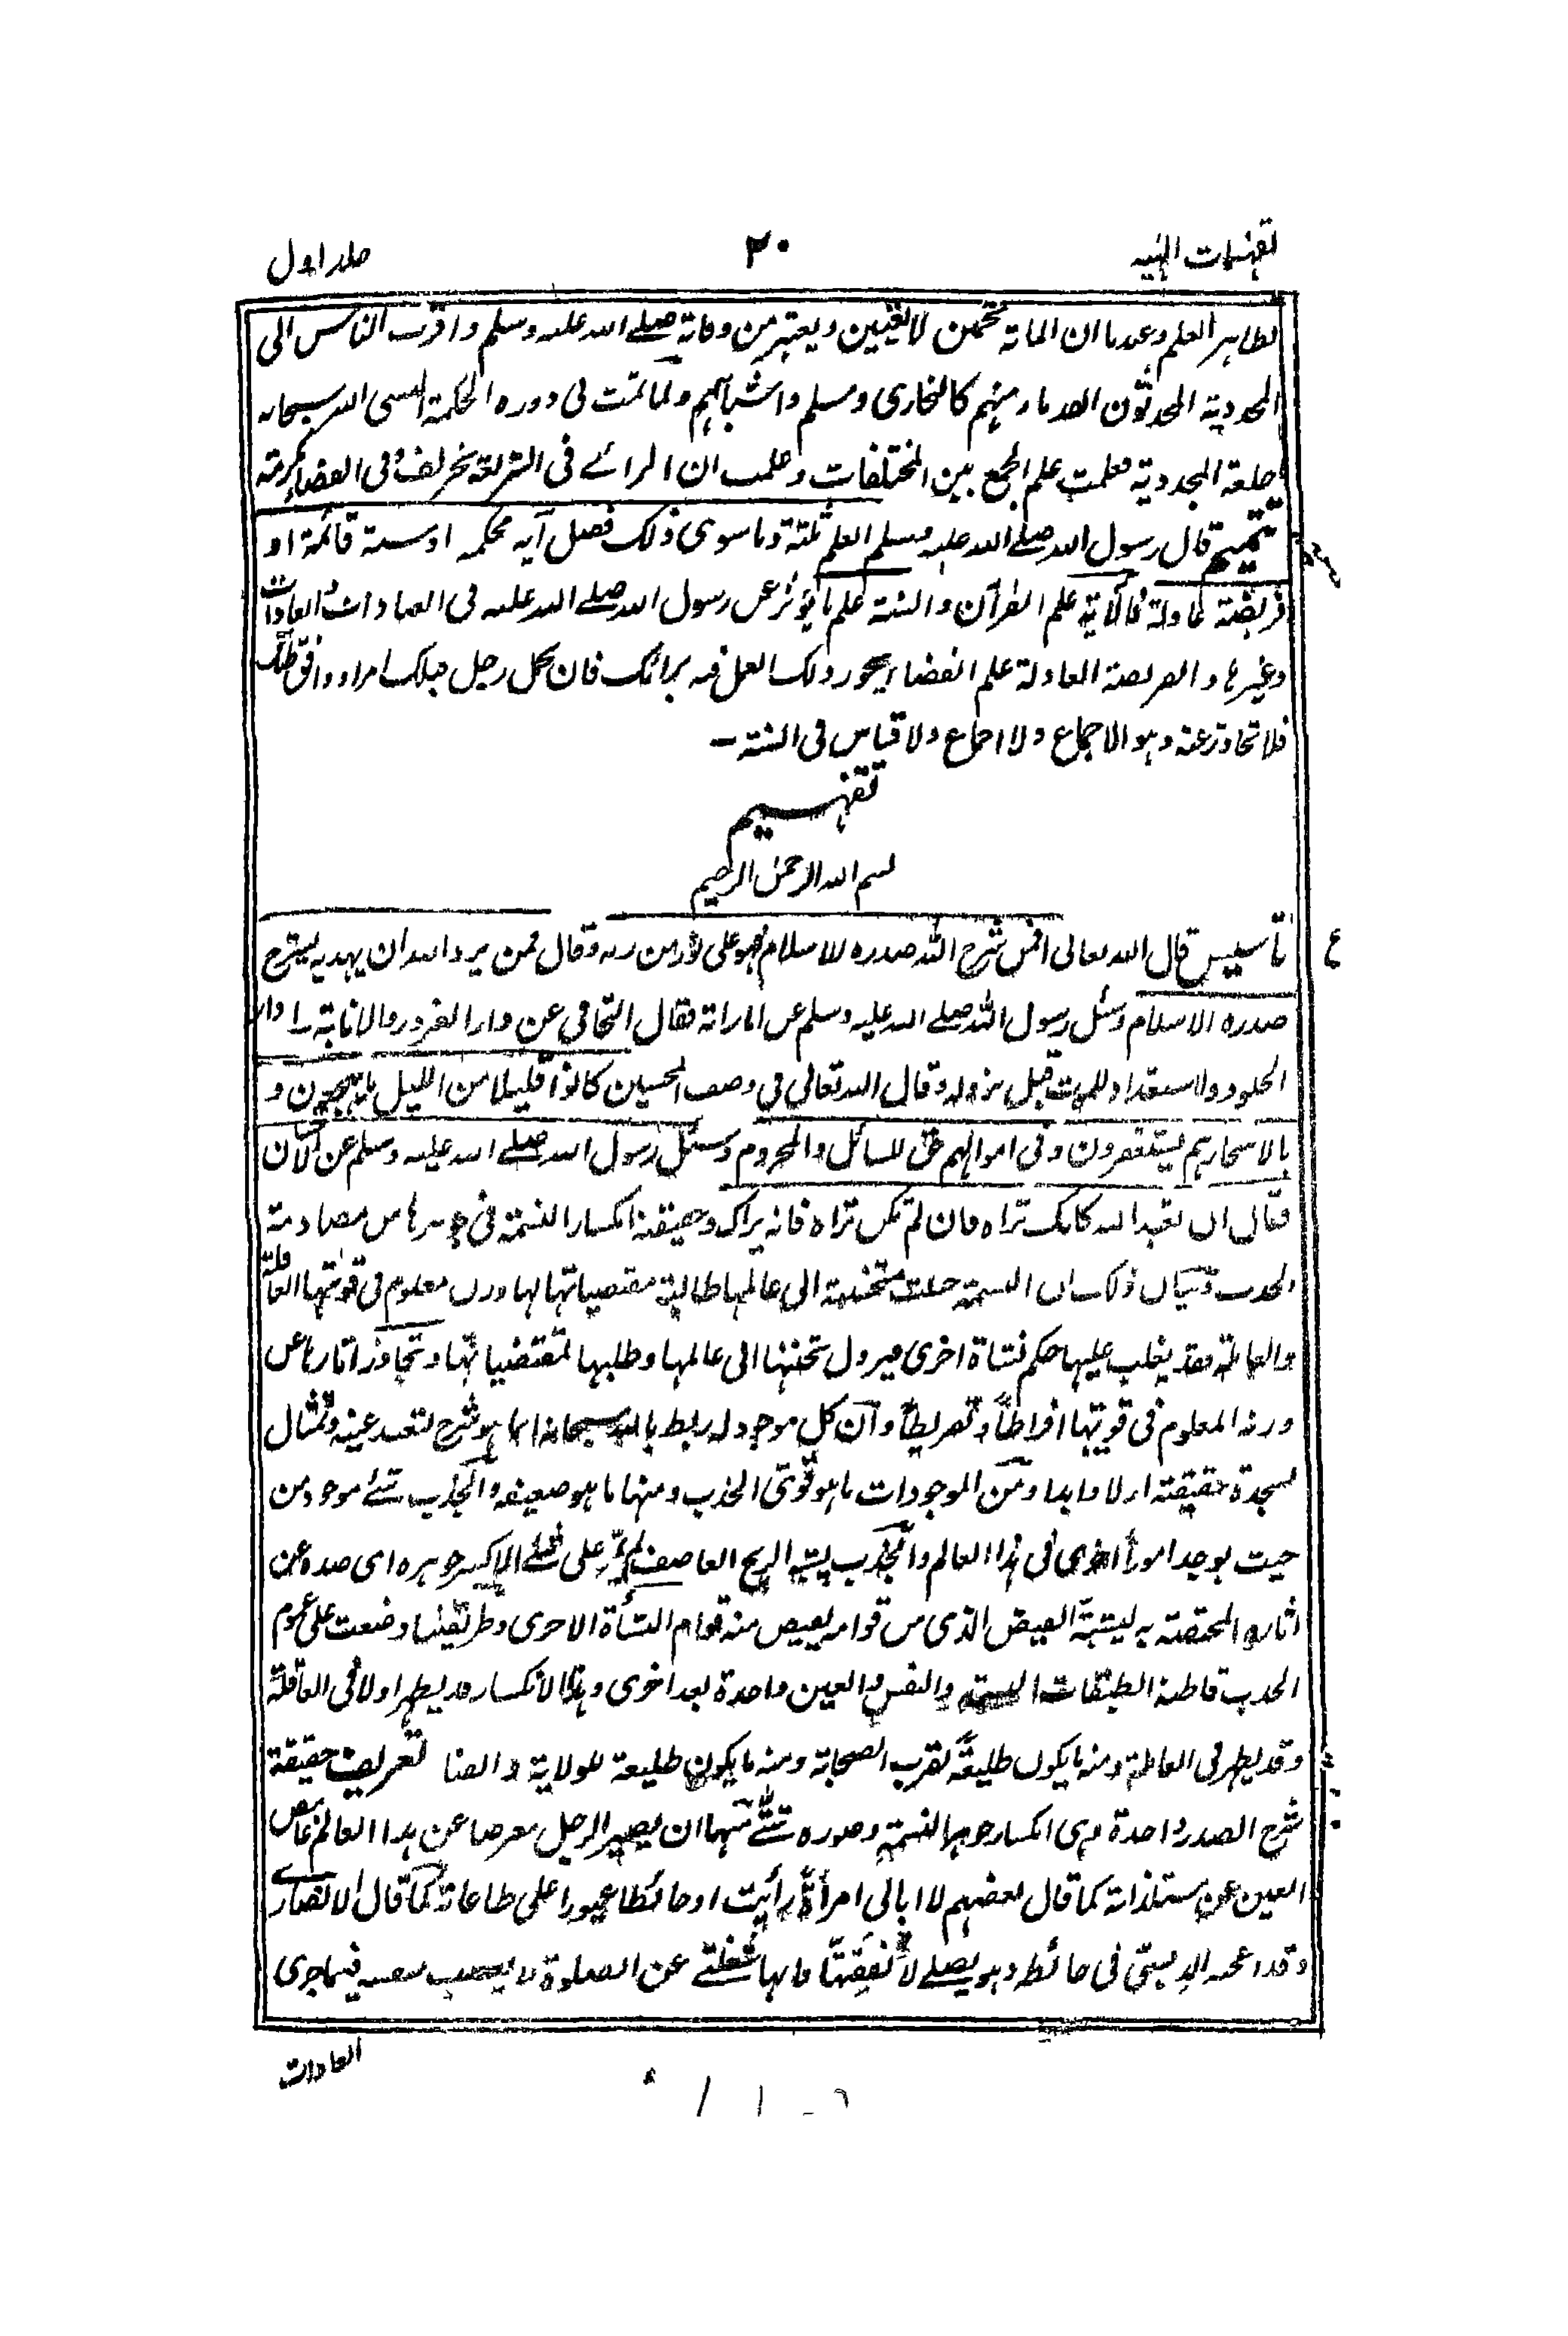 تفہیمات الٰہیہ ٣٠ جلد اول
لظاہر العلم وعندنا ان المائة تخمین لا تعیین ویعتبر من وفاتہ صلے اللہ علیہ وسلم واقرب الناس الی
المجددیة المحدثون القدماء منہم کالبخاری ومسلم واشباہہم ولما تمت لی دورة الحکمة البسنی اللہ سبحانہ
خلعة المجددیة فعلمت علم الجمع بین المختلفات وعلمت ان الرائے فی الشریعة تحریف وفی القضاء مکرمة
تتمیم قال رسول اللہ صلے اللہ علیہ وسلم العلم ثلثة وما سوی ذلک فضل آیة محکمة او سنة قائمة او
فریضة عادلة فالآیة علم القرآن والسنة علم ما یؤثر عن رسول اللہ صلے اللہ علیہ فی العبادات والعادات
وغیرہا والفریضة العادلة علم القضاء یجوز ذلک العمل فیہ برائک فان عمل رجل قبلک امرا ووافق ظنک
فلا تتجاوز عنہ وہو الاجماع ولا اجماع ولا قیاس فی السنة –
تفہیم
بسم اللہ الرحمن الرحیم
تأسیس قال اللہ تعالی افمن شرح اللہ صدرہ للاسلام فہو علی نور من ربہ وقال فمن یرد اللہ ان یہدیہ یشرح
صدرہ للاسلام وسئل رسول اللہ صلے اللہ علیہ وسلم عن اماراتہ فقال التجافی عن دار الغرور والانابة الی دار
الخلود والاستعداد للموت قبل نزولہ وقال اللہ تعالی فی وصف المحسنین کانوا قلیلا من اللیل ما یہجعون و
بالاسحار ہم یستغفرون وفی اموالہم حق للسائل والمحروم وسئل رسول اللہ صلے اللہ علیہ وسلم عن الاحسان
فقال ان تعبد اللہ کانک تراہ فان لم تکن تراہ فانہ یراک وحقیقتہ انکسار النسمة فی جوہرہا من مصادمة
الجذب وبیان ذلک ان النسمة خلقت متحننة الی عالمہا طالبة مقتضیاتہا لہا وزن معلوم فی قوتیہا العاقلة
والعاملة فقد یغلب علیہا حکم نشاة اخری فیزول تحننہا الی عالمہا وطلبہا لمقتضیاتہا وتجاوز آثارہا عن
وزنہ المعلوم فی قوتیہا افراطاً وتفریطاً وان کل موجود لہ ربط باللہ سبحانہ انما ہو شرح لتعبد عینہ وتمثال
لسجدة حقیقتہ ازلا وابدا ومن الموجودات ما ہو قوی الجذب ومنہا ما ہو ضعیفہ والجذب شئے موجود من
حیث یوجد امورا اخری فی ہذا العالم والجذب یشبہ الریح العاصف لم یمر علی شئے الا کسر جوہرہ ای صدہ عن
آثارہ المختصة بہ لیشبہ الفیض الذی من قوامہ یفیض منہ قوام النشأة الاخری وطریقتنا وضعت علی عموم
الجذب قاطبة الطبقات النسمة والنفس والعین واحدة بعد اخری وہذا الانکسار قد یظہر اولا فی العاقلة
وقد یظہر فی العاملة ومنہ ما یکون طلیعة لقرب الصحابة ومنہ ما یکون طلیعة للولایة والفنا تعریف حقیقة
شرح الصدر واحدة وہی انکسار جوہر النسمة وصورہ شتے منہا ان یصیر الرجل معرضا عن ہذا العالم غامض
العین عن مستلذاتہ کما قال بعضہم لا ابالی امرأة رأیت او حائطا غیورا علی طاعاتہ کما قال الانصارے
وقد اعجبہ الدبسی فی حائط وہو یصلے لأنفقنہا فانہا شغلتنے عن الصلوة لا یعصب نفسہ فیما جری
العادات